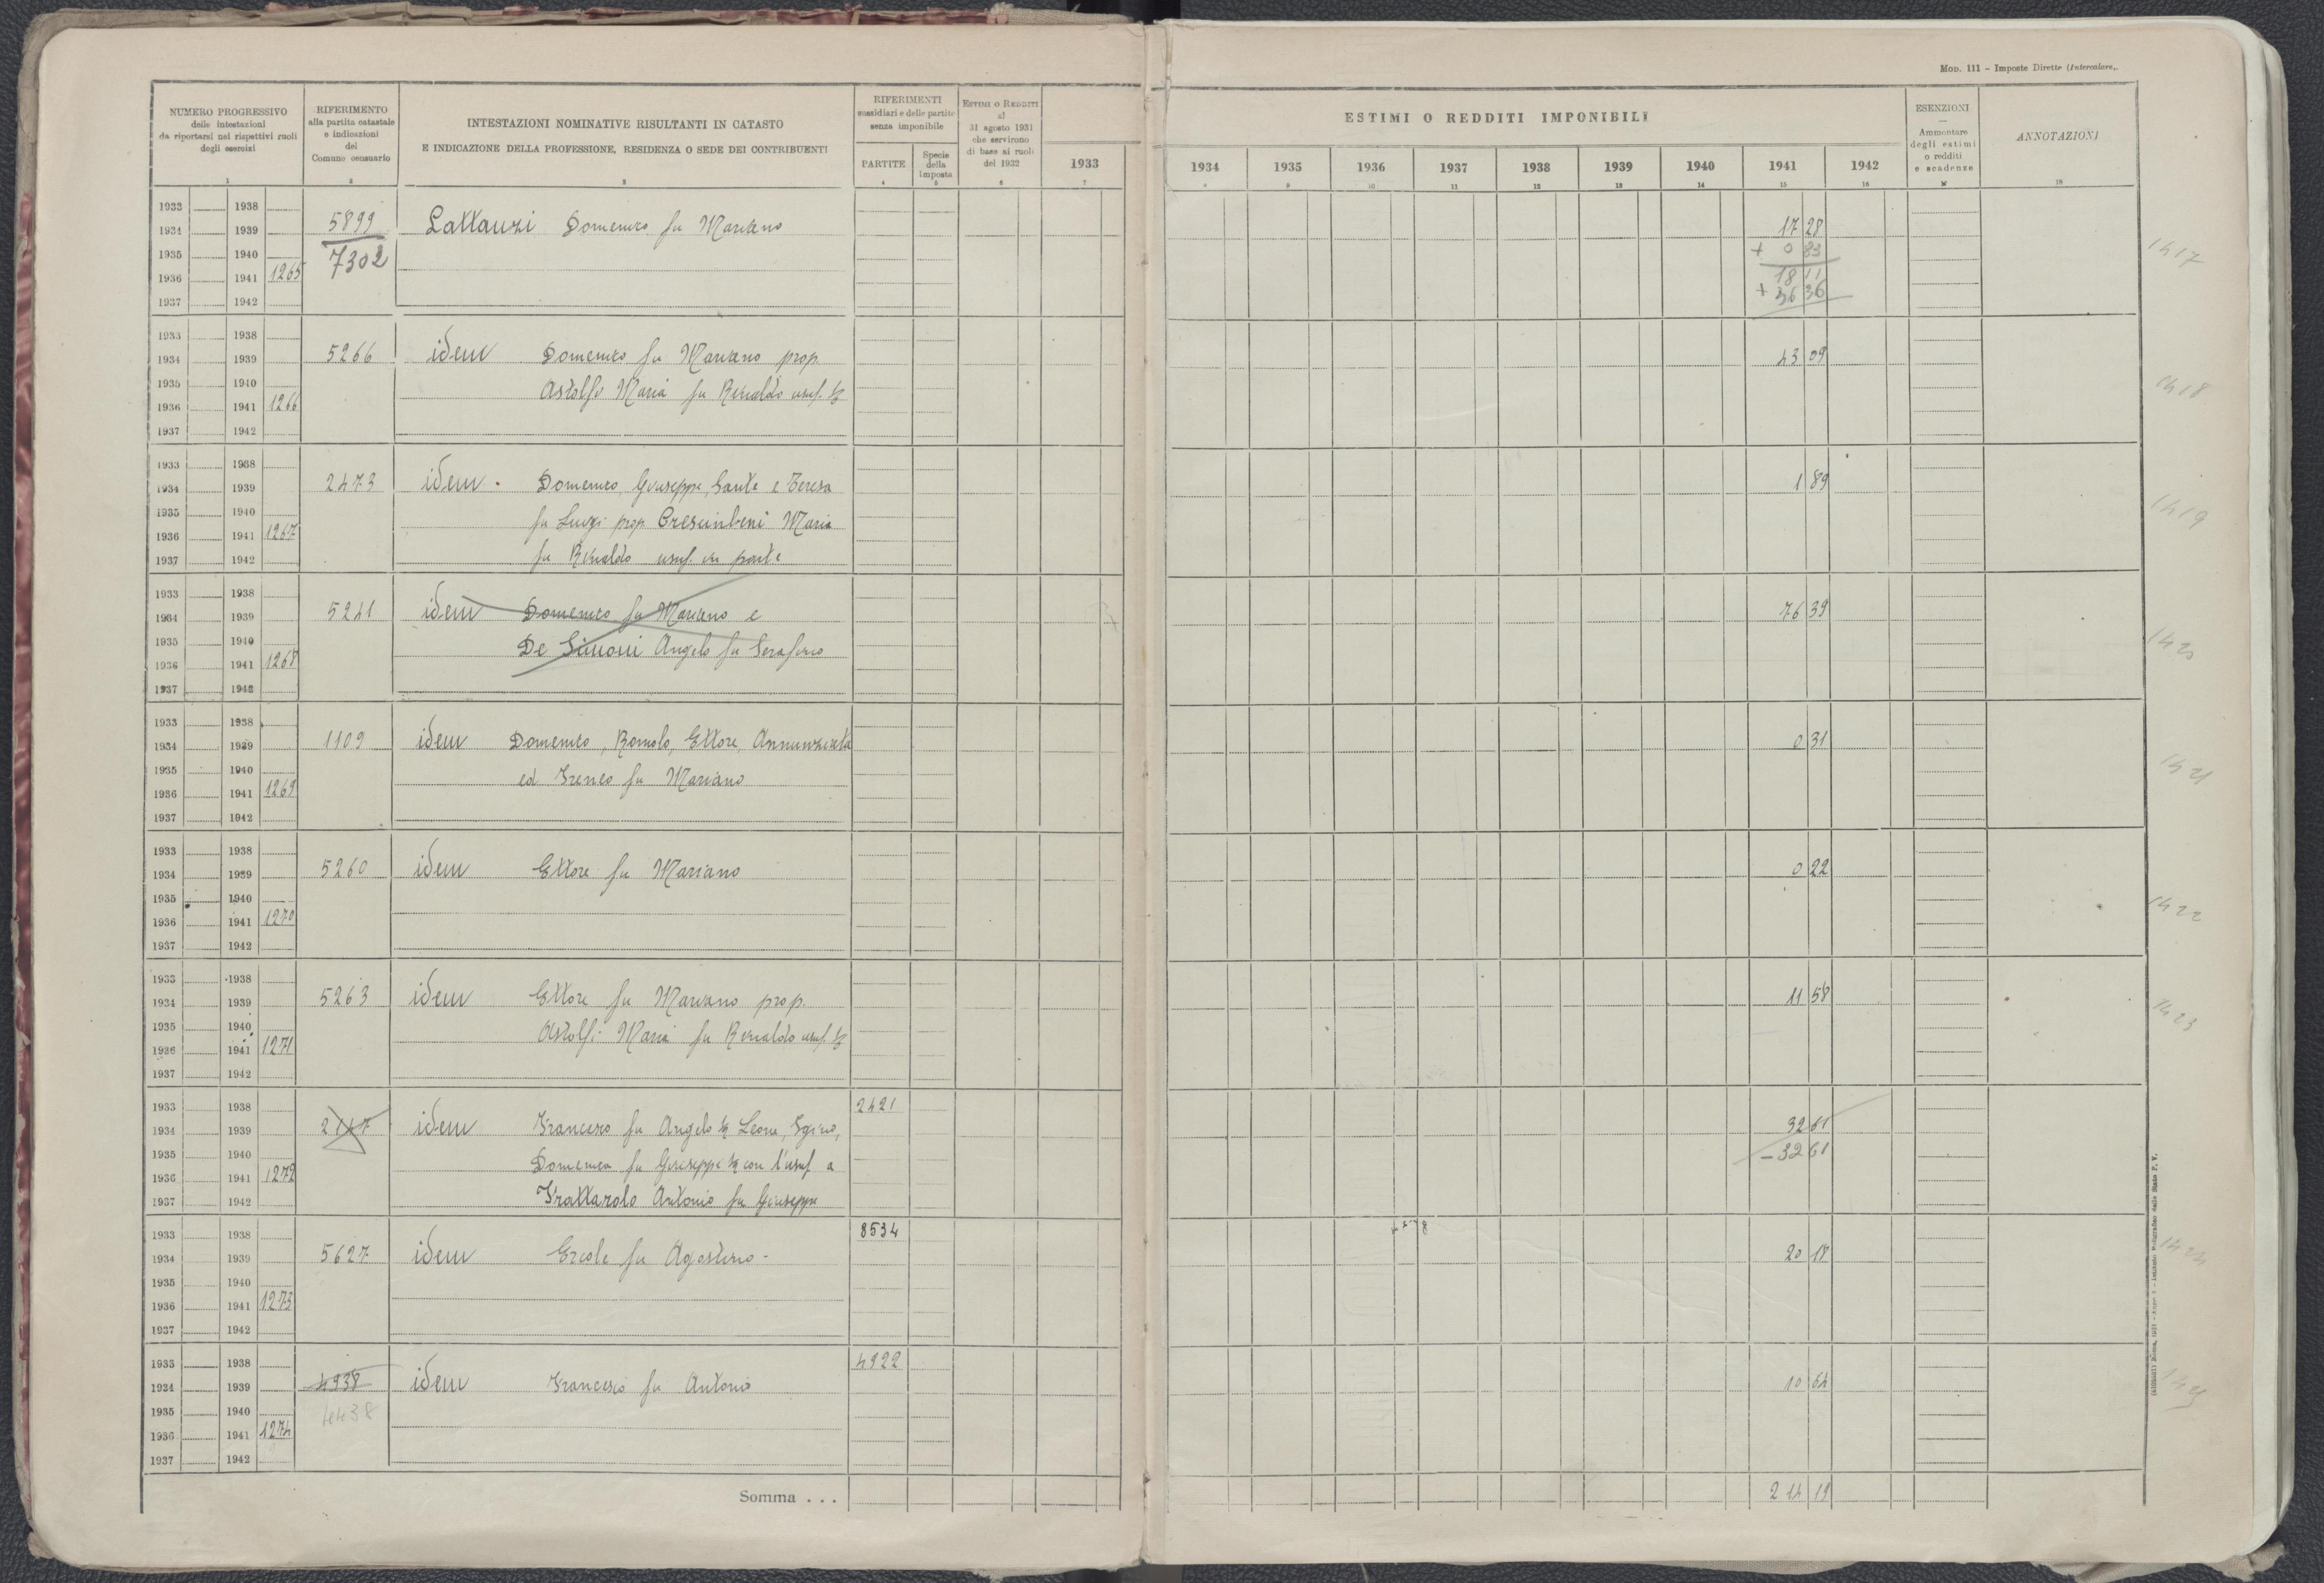 Mod. 111 – Imposte Dirette (Intercalare).
NUMERO PROGRESSIVO
delle intestazioni
da riportarsi nei rispettivi ruoli
degli esercizi
1
RIFERIMENTO
alla partita catastale
e indicazioni
del
Comune censuario
2
INTESTAZIONI NOMINATIVE RISULTANTI IN CATASTO
E INDICAZIONE DELLA PROFESSIONE, RESIDENZA O SEDE DEI CONTRIBUENTI
3
RIFERIMENTI
sussidiari e delle partite
senza imponibile
PARTITE
4
Specie
della
imposta
5
Estimi o Redditi
al
31 agosto 1931
che servirono
di base ai ruoli
del 1932
6
ESTIMI O REDDITI IMPONIBILI
1933 1934 1935 1936 1937 1938 1939 1940 1941 1942
7 8 9 10 11 12 13 14 15 16
ESENZIONI
—
Ammontare
degli estimi
o redditi
e scadenze
17
ANNOTAZIONI
18
1933 1938
1934 1939 5899 Lattanzi Domenico fu Mariano 17 28
1935 1940 7302 + 0 83 1417
1936 1941 1265 18 11
1937 1942 + 36 36
1933 1938
1934 1939 5266 idem Domenico fu Mariano prop. 43 09
1935 1940 Astolfi Maria fu Rinaldo usuf. 1418
1936 1941 1266
1937 1942
1933 1938
1934 1939 2473 idem Domenico, Giuseppe, Sante e Teresa 1 89
1935 1940 fu Luigi prop. Crescimbeni Maria 1419
1936 1941 1267
1937 1942 fu Rinaldo usuf. in parte
1933 1938
1934 1939 5241 idem Domenico fu Mariano e 76 39
1935 1940 De Simoni Angelo fu Serafino 1420
1936 1941 1268
1937 1942
1933 1938
1934 1939 1109 idem Domenico, Romolo, Ettore, Annunziata 0 31
1935 1940 ed Ireneo fu Mariano 1421
1936 1941 1269
1937 1942
1933 1938
1934 1939 5260 idem Ettore fu Mariano 0 22
1935 1940 1422
1936 1941 1270
1937 1942
1933 1938
1934 1939 5263 idem Ettore fu Mariano prop. 11 58
1935 1940 Astolfi Maria fu Rinaldo usuf. 1423
1936 1941 1271
1937 1942
1933 1938 2421
1934 1939 2747 idem Francesco fu Angelo Leone, Igino, 32 61
1935 1940 Domenica fu Giuseppe con l'usuf. a – 32 61
1936 1941 1272
1937 1942 Frattarolo Antonio fu Giuseppe
1933 1938 8534
1934 1939 5627 idem Ercole fu Agostino 20 18 1424
1935 1940
1936 1941 1273
1937 1942
1933 1938 4922
1934 1939 4938 idem Francesco fu Antonio 10 64 1425
1935 1940 4438
1936 1941 1274
1937 1942
Somma . . . 214 19